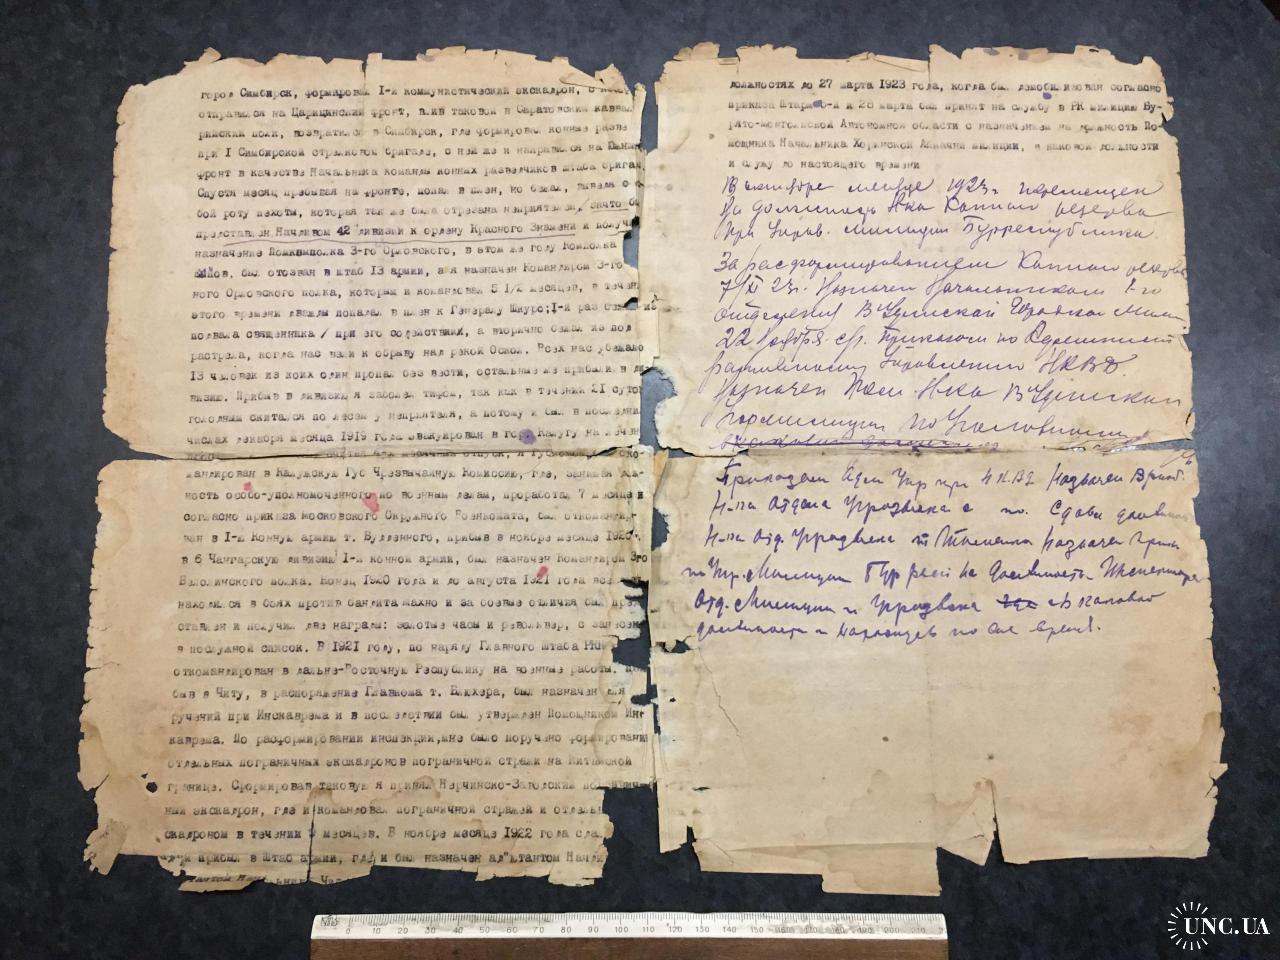 город Симбирск, формировал I-й коммунистический эскадрон, с
отправился на Царицинский фронт, влив таковой в Саратовский кавале
рийский полк, возвратился в Симбирск, где формировал конные разве
при I Симбирской стрелковой бригаде, с ней же и направился на Южный
фронт в качестве Начальника команды конных разведчиков штаба бригад
Спустя месяц пребывая на фронте, попал в плен, но бежал, выведя с
бой роту пехоты, которая так же была отрезана неприятелем, за что бы
представлен Начдивом 42 дивизии к ордену Красного Знамени и получи
назначение Помкомполка 3-го Орловского, в этом же году Комполка
был отозван в штаб 13 армии, а я назначен Командиром 3-го
ного Орловского полка, которым и командовал 5 1/2 месяцев, в течени
этого времени дважды попадал в плен к Генералу Шкуро; I-й раз бежал из
подвала священника / при его содействии, а вторично бежал из под
растрела, когда нас вели к обрыву над рекой Оскол. Всех нас убежало
13 человек из коих один пропал без вести, остальные же прибыли в ди
визию. Прибыв в дивизию я заболел тифом, так как в течении 21 суток
голодным скитался по лесам у неприятеля, а потому и был в последних
числах декабря месяца 1919 года эвакуирован в город Калугу на лечен
месячный отпуск, я Губвоенко
мандирован в Калужскую Губ Чрезвычайную Комиссию, где, занимая
ность особо-уполномоченного по военным делам, проработал 7 месяце и
согласно приказа московского Окружного Военкомата, был откомандир
ван в I-ю Конную армию т. Буденного, прибыв в ноябре месяце 1920
в 6 Чангарскую дивизию I-й конной армии, был назначен Командиром 3го
полка. Конец 1920 года и до августа 1921 года все
находился в боях против бандита махно и за боевые отличия был пред
ставлен и получил две награды: золотые часы и револьвер, с занесен
в послужной список. В 1921 году, по наряду Главного штаба РККА
откомандирован в дальне-Восточную Республику на военные работы.
быв в Читу, в распоряжение Главкома т. Блюхера, был назначен для
ручений при Инскаврема и в последствии был утвержден Помощником Инс
каврема. По расформировании инспекции, мне было поручено формировани
отдельных пограничных эскадронов пограничной стражи на Китайской
границе. Сформировав таковую я принял Нерчинско-Заводский
ный эскадрон, где и командовал пограничной стражей и отдельн
скадроном в течении 9 месяцев. В ноябре месяце 1922 года сда
прибыл в Штаб армии, где и был назначен ад"ютантом
должностях до 27 марта 1923 года, когда был демобилизован согласно
приказа Штарма 5-й и 28 марта был принят на службу в РК милицию Бу-
рято-монгольской Автономной области с назначением на должность По-
мощника Начальника Хоринской Аймачн милиции, в каковой должности
и служу до настоящего времени
В октябре месяце 1923г. перемещен
на должность Н-ка Конного резерва
при Управ. милиции Бурреспублики.
За расформированием Конного резерва
7/XI 23г. назначен Начальником 1-го
отделения В Удинской Городской Мил
22 ноября с/г. Приказом по
Управлению НКВД.
Назначен Пом. Н-ка В Удинской
Гормилиции по Уголовному
Приказом Адм Упр при НКВД назначен Врид.
Н-ка отдела Угрозыска с по. Сдаче
Н-ка отд. Угрозыска назначен
по Упр. Милиции Бурресп на должность Инспектора
Отд. Милиции и Угрозыска в каковой
должности и нахожусь по сие время.
0 10 20 30 40 50 60 70 80 90 100 110 120 130 140 150 160 170 180 190 200 210
UNC.UA